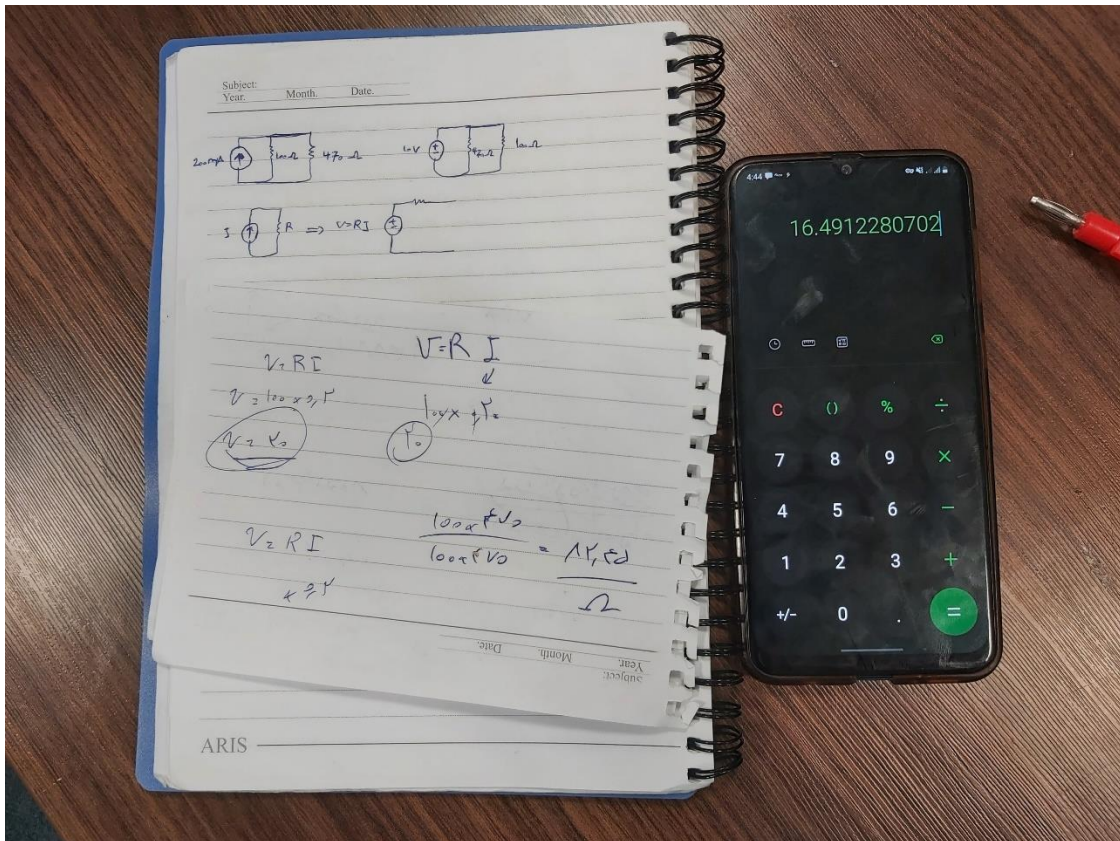 Subject:
Year. Month. Date.
200mA 100Ω 470Ω 10V 470Ω 100Ω
I R ⇒ V=RI
V=RI V=R I
↙
V=100×0,۲ 100×0,۲=
V= ۲0 ۲0
V=RI 100×۴۷0
100+۴۷0 = ۸۲,۴۵
Ω
×0,۲
Subject:
Year. Month. Date.
ARIS
4:44
16.4912280702
C () % ÷
7 8 9 ×
4 5 6 −
1 2 3 +
+/− 0 . =